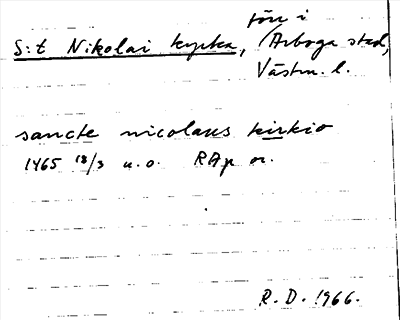 förs i
S:t Nikolai kyrka, Arboga stad,
Västm. l.
sancte nicolaus kirkio
1465 18/3 u.o. RAp or.
R.D. 1966.